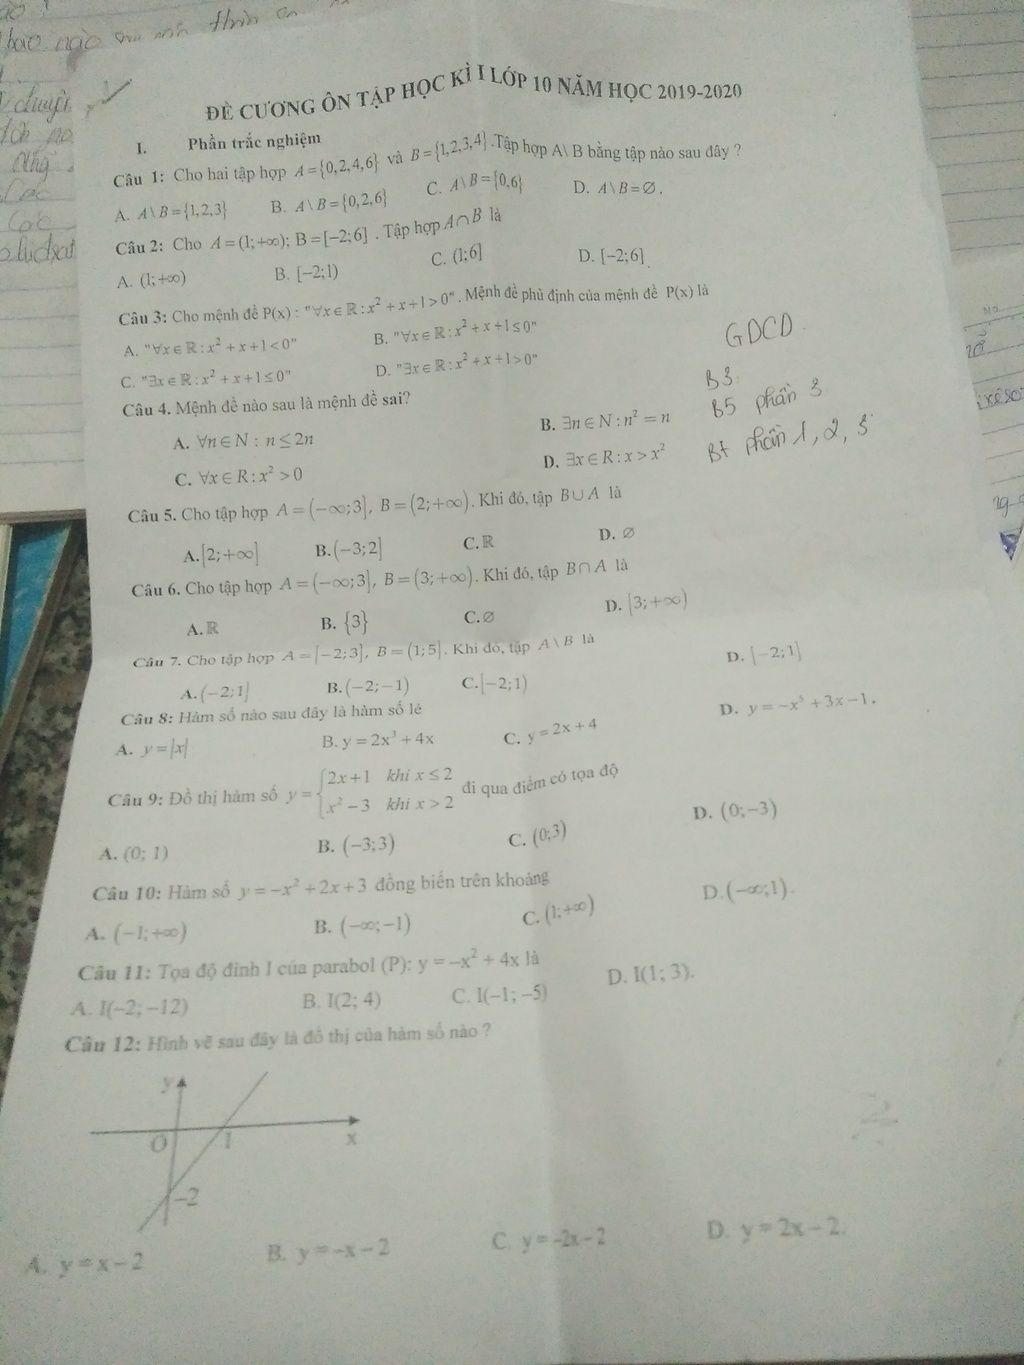 ĐỀ CƯƠNG ÔN TẬP HỌC KÌ I LỚP 10 NĂM HỌC 2019-2020
I. Phần trắc nghiệm
Câu 1: Cho hai tập hợp A={0,2,4,6} và B={1,2,3,4}.Tập hợp A\B bằng tập nào sau đây ?
A. A\B={1,2,3} B. A\B={0,2,6} C. A\B={0,6} D. A\B=∅.
Câu 2: Cho A=(1;+∞); B=[−2;6] . Tập hợp A∩B là
A. (1;+∞) B. [−2;1) C. (1;6] D. [−2;6]
Câu 3: Cho mệnh đề P(x) : "∀x∈ℝ:x²+x+1>0". Mệnh đề phủ định của mệnh đề P(x) là
A. "∀x∈ℝ:x²+x+1<0" B. "∀x∈ℝ:x²+x+1≤0"
C. "∃x∈ℝ:x²+x+1≤0" D. "∃x∈ℝ:x²+x+1>0"
GDCD.
Câu 4. Mệnh đề nào sau là mệnh đề sai?
B3
A. ∀n∈N : n≤2n B. ∃n∈N:n²=n
B5 phần 3
C. ∀x∈R:x²>0 D. ∃x∈R:x>x²
Bt phần 1, 2, 3
Câu 5. Cho tập hợp A=(−∞;3], B=(2;+∞). Khi đó, tập B∪A là
A.[2;+∞] B.(−3;2] C.ℝ D. ∅
Câu 6. Cho tập hợp A=(−∞;3], B=(3;+∞). Khi đó, tập B∩A là
A.ℝ B. {3} C.∅ D. [3;+∞)
Câu 7. Cho tập hợp A=[−2;3], B=(1;5]. Khi đó, tập A\B là
A.(−2;1] B.(−2;−1) C.[−2;1) D. [−2;1]
Câu 8: Hàm số nào sau đây là hàm số lẻ
A. y=|x| B. y=2x³+4x C. y=2x+4 D. y=−x⁵+3x−1.
Câu 9: Đồ thị hàm số y={2x+1 khi x≤2
x²−3 khi x>2 đi qua điểm có tọa độ
A. (0; 1) B. (−3;3) C. (0;3) D. (0;−3)
Câu 10: Hàm số y=−x²+2x+3 đồng biến trên khoảng
A. (−1;+∞) B. (−∞;−1) C. (1;+∞) D.(−∞;1).
Câu 11: Tọa độ đỉnh I của parabol (P): y=−x²+4x là
A. I(−2;−12) B. I(2; 4) C. I(−1; −5) D. I(1; 3).
Câu 12: Hình vẽ sau đây là đồ thị của hàm số nào ?
y
O 1 x
−2
A. y=x−2 B. y=−x−2 C. y=−2x−2 D. y=2x−2.